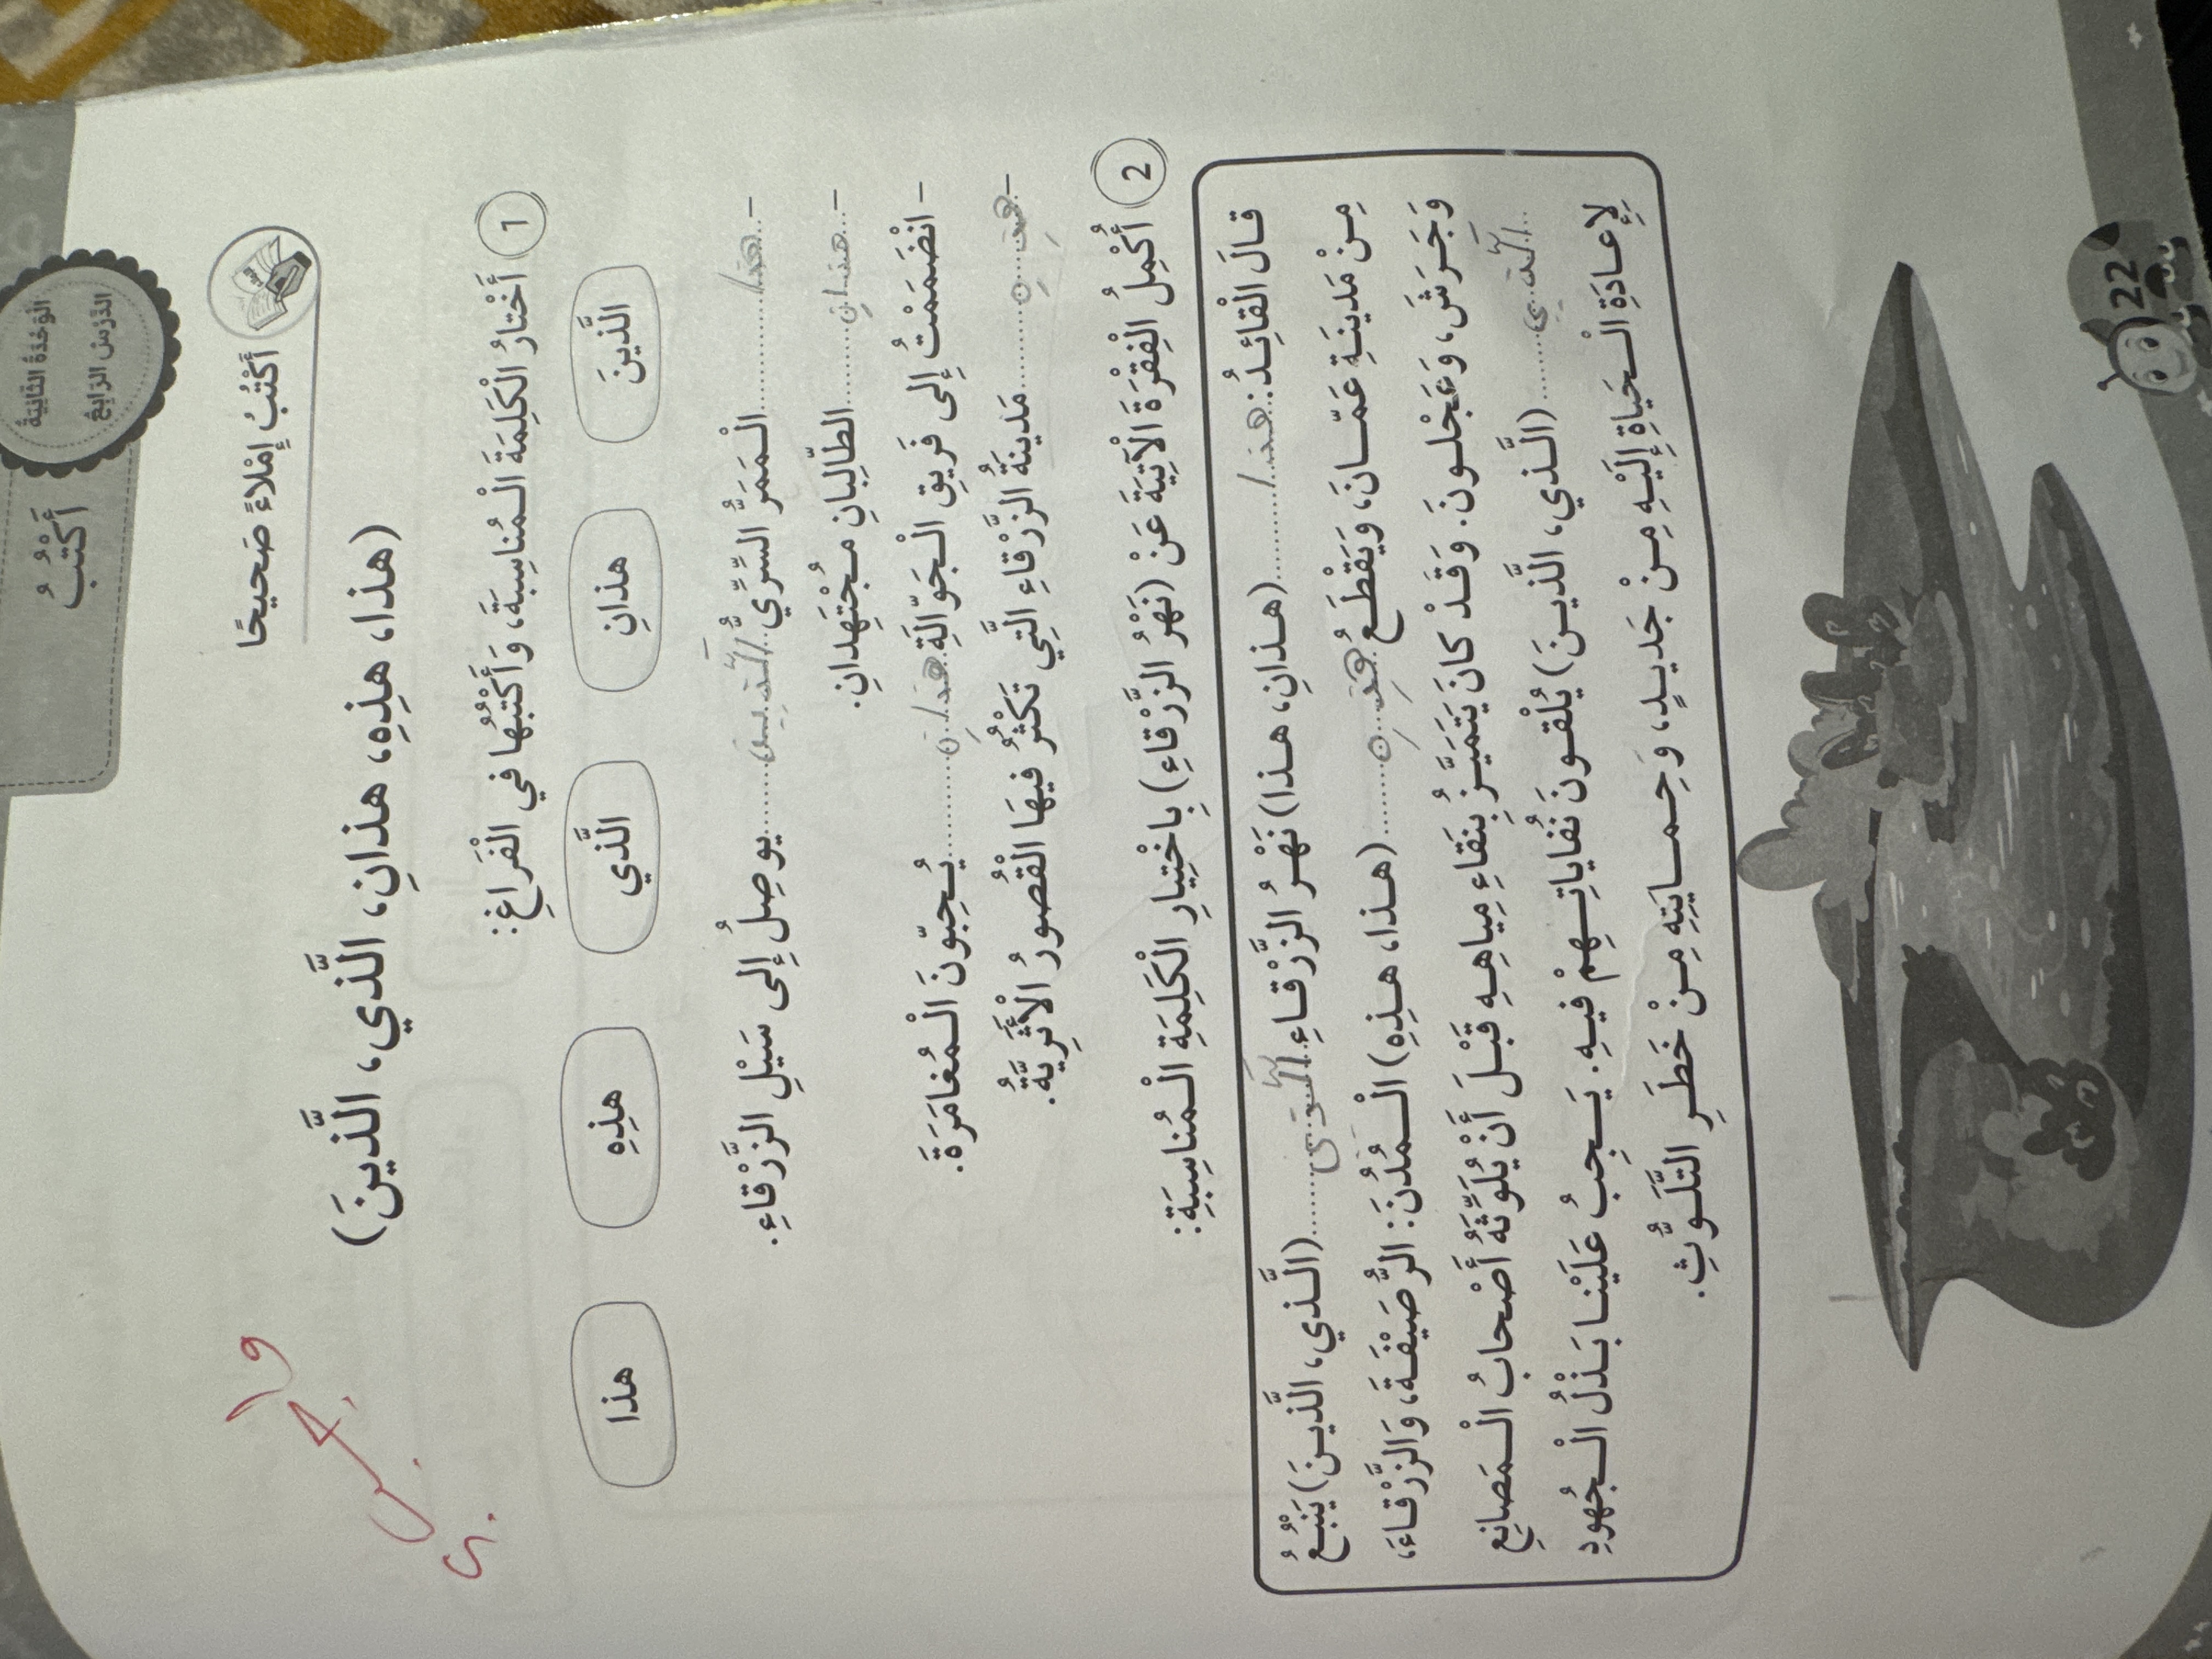 الْوَحْدَةُ الثَّانِيَةُ
الدَّرْسُ الرَّابِعُ
أَكْتُبُ
أَكْتُبُ إِمْلاءً صَحيحًا
(هذا، هذِهِ، هذانِ، الَّذي، الَّذينَ)
1 أَخْتارُ الْكَلِمَةَ الْمُناسِبَةَ، وَأَكْتُبُها في الْفَراغِ:
الَّذينَ هذانِ الَّذي هذِهِ هذا
- هذا الْمَمَرُّ السِّرِّيُّ الَّذي يوصِلُ إِلى سَيْلِ الزَّرْقاءِ.
- هذان الطّالِبانِ مُجْتَهِدانِ.
- انْضَمَمْتُ إِلى فَريقِ الْجَوّالَةِ يُحِبّونَ الْمُغامَرَةَ.
- هذه مَدينَةُ الزَّرْقاءِ الَّتِي تَكْثُرُ فيهَا الْقُصورُ الْأَثَرِيَّةُ.
2 أُكْمِلُ الْفِقْرَةَ الْآتِيَةَ عَنْ (نَهْرُ الزَّرْقاءِ) بِاخْتِيارِ الْكَلِمَةِ الْمُناسِبَةِ:
قالَ الْقائِدُ: هذا (هذانِ، هذا) نَهْرُ الزَّرْقاءِ الذي (الَّذي، الَّذينَ) يَنْبُعُ
مِنْ مَدينَةِ عَمّانَ، وَيَقْطَعُ هذه (هذا، هذِهِ) الْمُدُنَ: الرُّصَيْفَةَ، وَالزَّرْقاءَ،
وَجَرَشَ، وَعَجْلونَ. وَقَدْ كانَ يَتَمَيَّزُ بِنَقاءِ مِياهِهِ قَبْلَ أَنْ يُلَوِّثَهُ أَصْحابُ الْمَصانِعِ
الذي (الَّذي، الَّذينَ) يُلْقونَ نُفاياتِهِمْ فيهِ. يَجِبُ عَلَيْنا بَذْلُ الْجُهودِ
لِإِعادَةِ الْحَياةِ إِلَيْهِ مِنْ جَديدٍ، وَحِمايَتِهِ مِنْ خَطَرِ التَّلَوُّثِ.
22